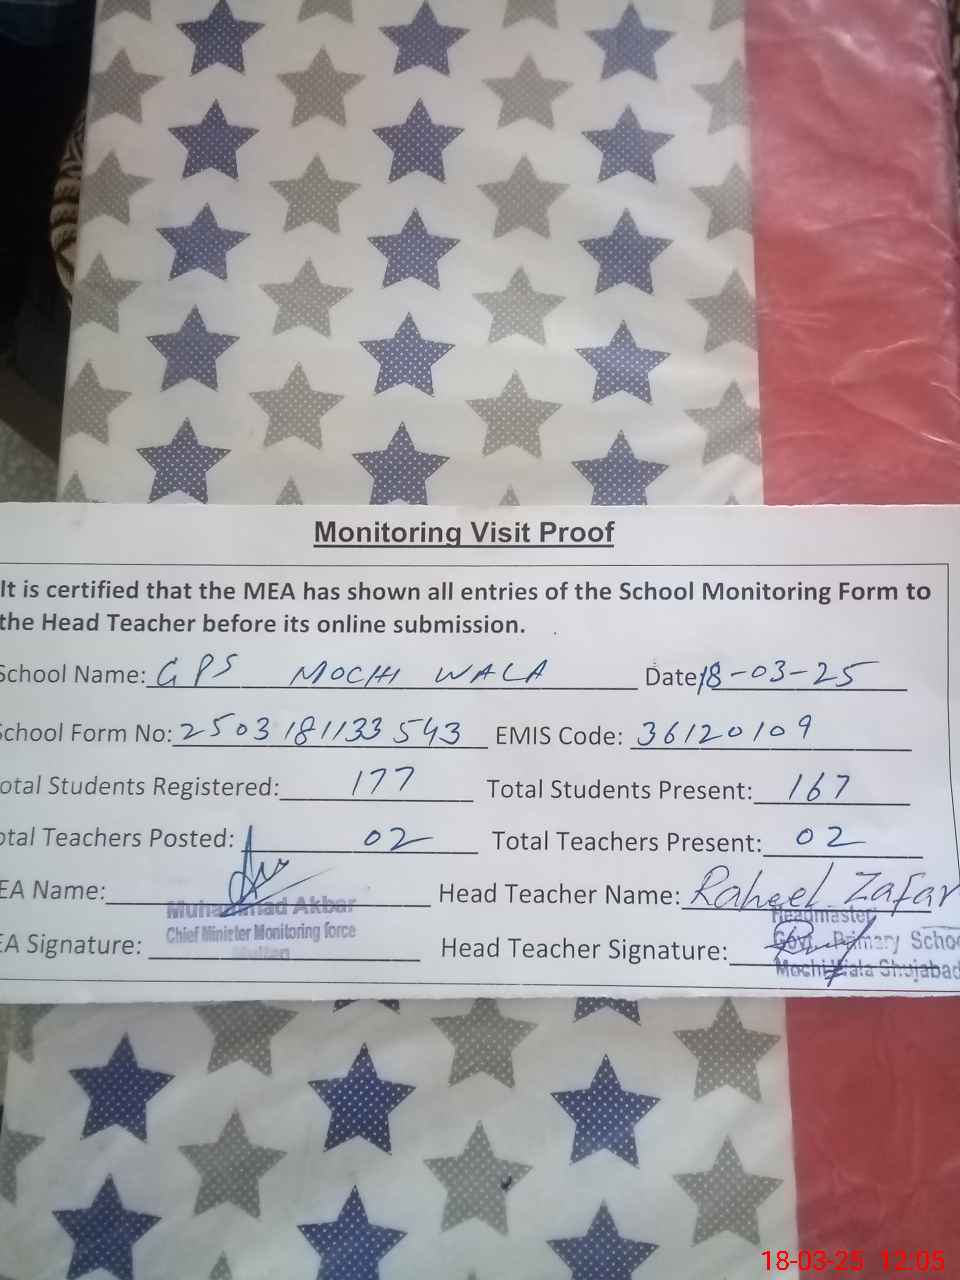 Monitoring Visit Proof
It is certified that the MEA has shown all entries of the School Monitoring Form to
the Head Teacher before its online submission.
School Name: GPS MOCHI WALA Date: 18-03-25
School Form No: 2503181133543 EMIS Code: 36120109
otal Students Registered: 177 Total Students Present: 167
otal Teachers Posted: 02 Total Teachers Present: 02
EA Name: Head Teacher Name: Raheel Zafar
Muhammad Akbar
Chief Minister Monitoring force
Multan
Headmaster
EA Signature: Head Teacher Signature:
Govt. Primary Schoo
Mochi Wala Shujabad
18-03-25 12:05